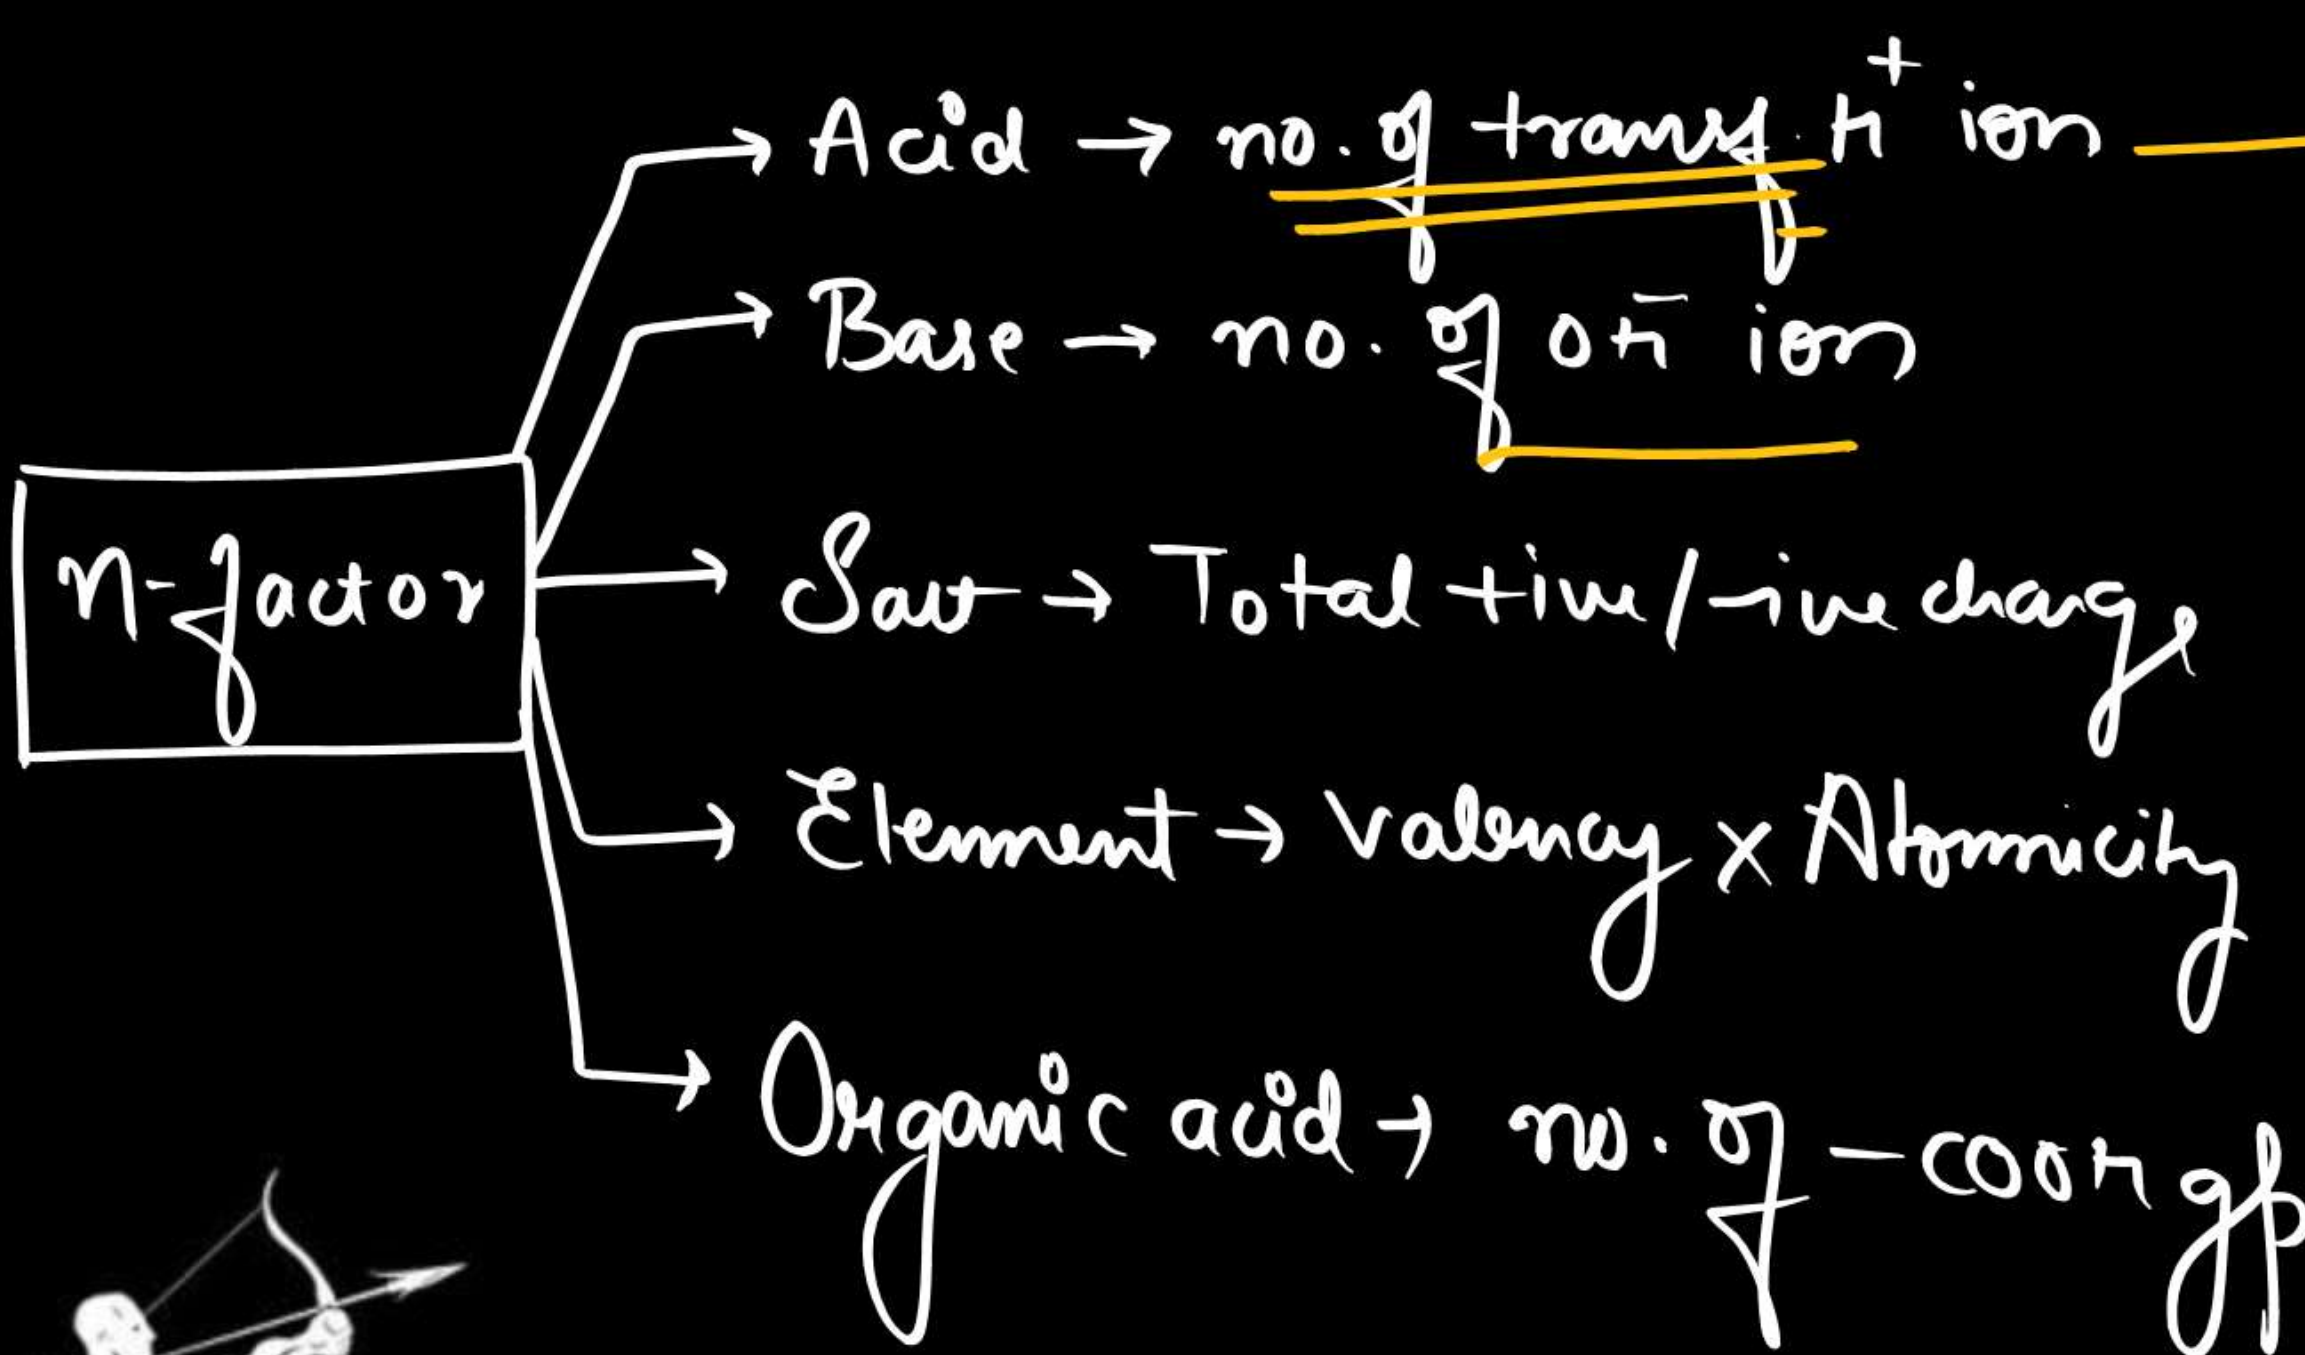 Acid → no. of transf. H⁺ ion
Base → no. of OH⁻ ion
n-factor
Salt → Total +ive/-ive charge
Element → Valency × Atomicity
Organic acid → no. of -COOH gp